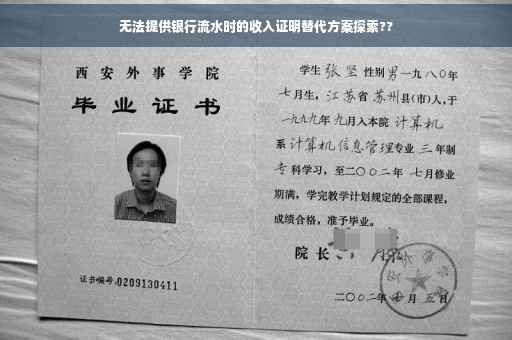 无法提供银行流水时的收入证明替代方案探索??
西安外事学院
毕业证书
证书编号:0209130411
学生张坚性别男一九八〇年
七月生,江苏省苏州县(市)人,于
一九九九年九月入本院计算机
系计算机信息管理专业三年制
专科学习,至二〇〇二年七月修业
期满,学完教学计划规定的全部课程,
成绩合格,准予毕业。
院长
二〇〇二年七月五日